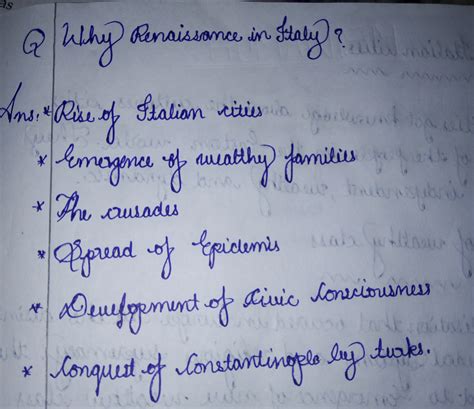 Q Why Renaissance in Italy?
Ans: * Rise of Italian cities
* Emergence of wealthy families
* The crusades
* Spread of Epidemis
* Development of Civic Consciousness
* Conquest of Constantinople by turks.